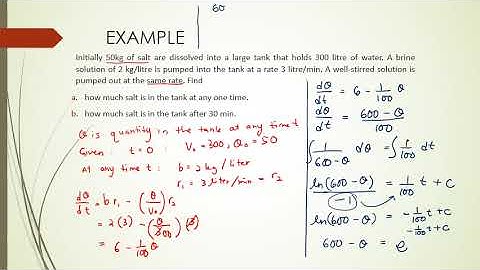 60
EXAMPLE
Initially 50kg of salt are dissolved into a large tank that holds 300 litre of water. A brine
solution of 2 kg/litre is pumped into the tank at a rate 3 litre/min. A well-stirred solution is
pumped out at the same rate. Find
a. how much salt is in the tank at any one time.
b. how much salt is in the tank after 30 min.
Q is quantity in the tank at any time t
Given t = 0 : V₀ = 300, Q₀ = 50
At any time t : b = 2 kg / liter
r₁ = 3 liter/min = r₂
dQ/dt = b r₁ - (Q/V₀) r₂
= 2(3) - (Q/300)(3)
= 6 - 1/100 Q
dQ/dt = 6 - 1/100 Q
dQ/dt = (600 - Q)/100
∫ 1/(600-Q) dQ = ∫ 1/100 dt
ln(600-Q)/(-1) = 1/100 t + C
ln(600-Q) = -1/100 t + C
600 - Q = e^(-1/100 t + C)